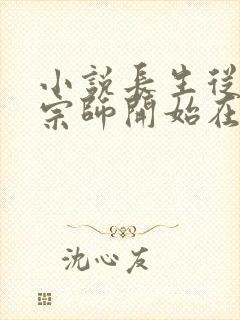 小說長生從
宗師開始在
沈心友